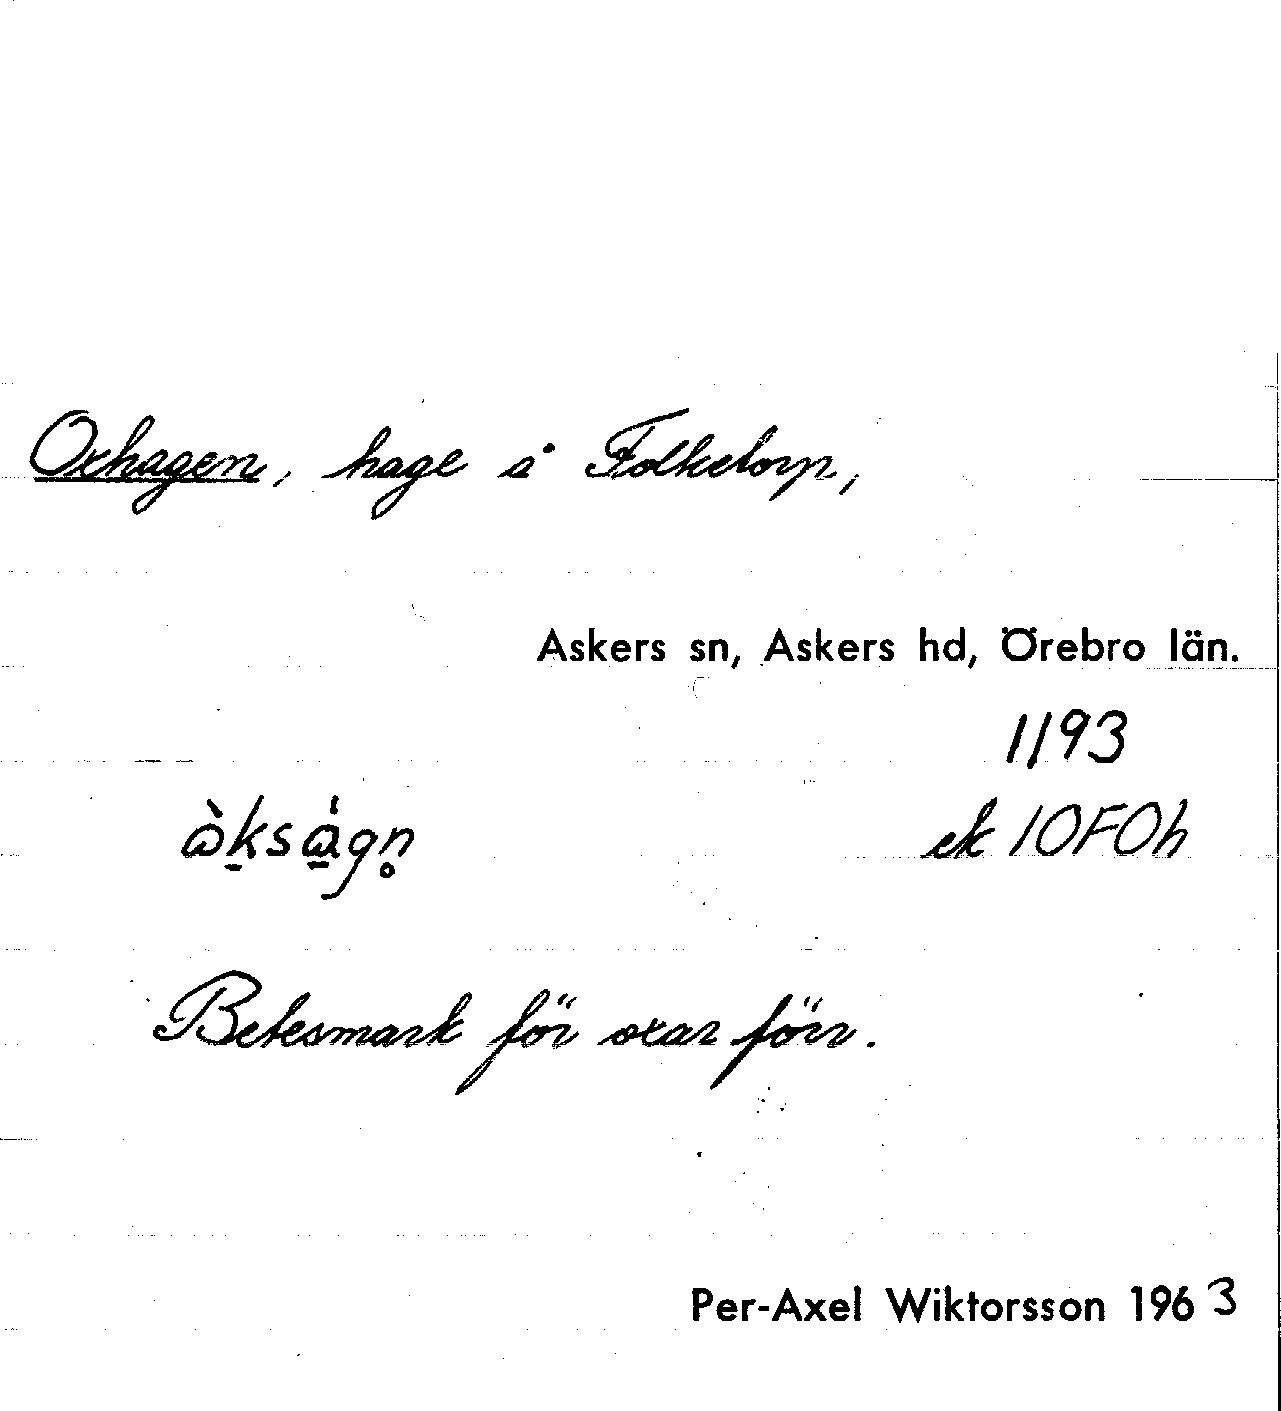 Oxhagen, hage å Folketorp,
Askers sn, Askers hd, Örebro län.
1193
ek 10F0h
Betesmark för oxar förr.
Per-Axel Wiktorsson 1963